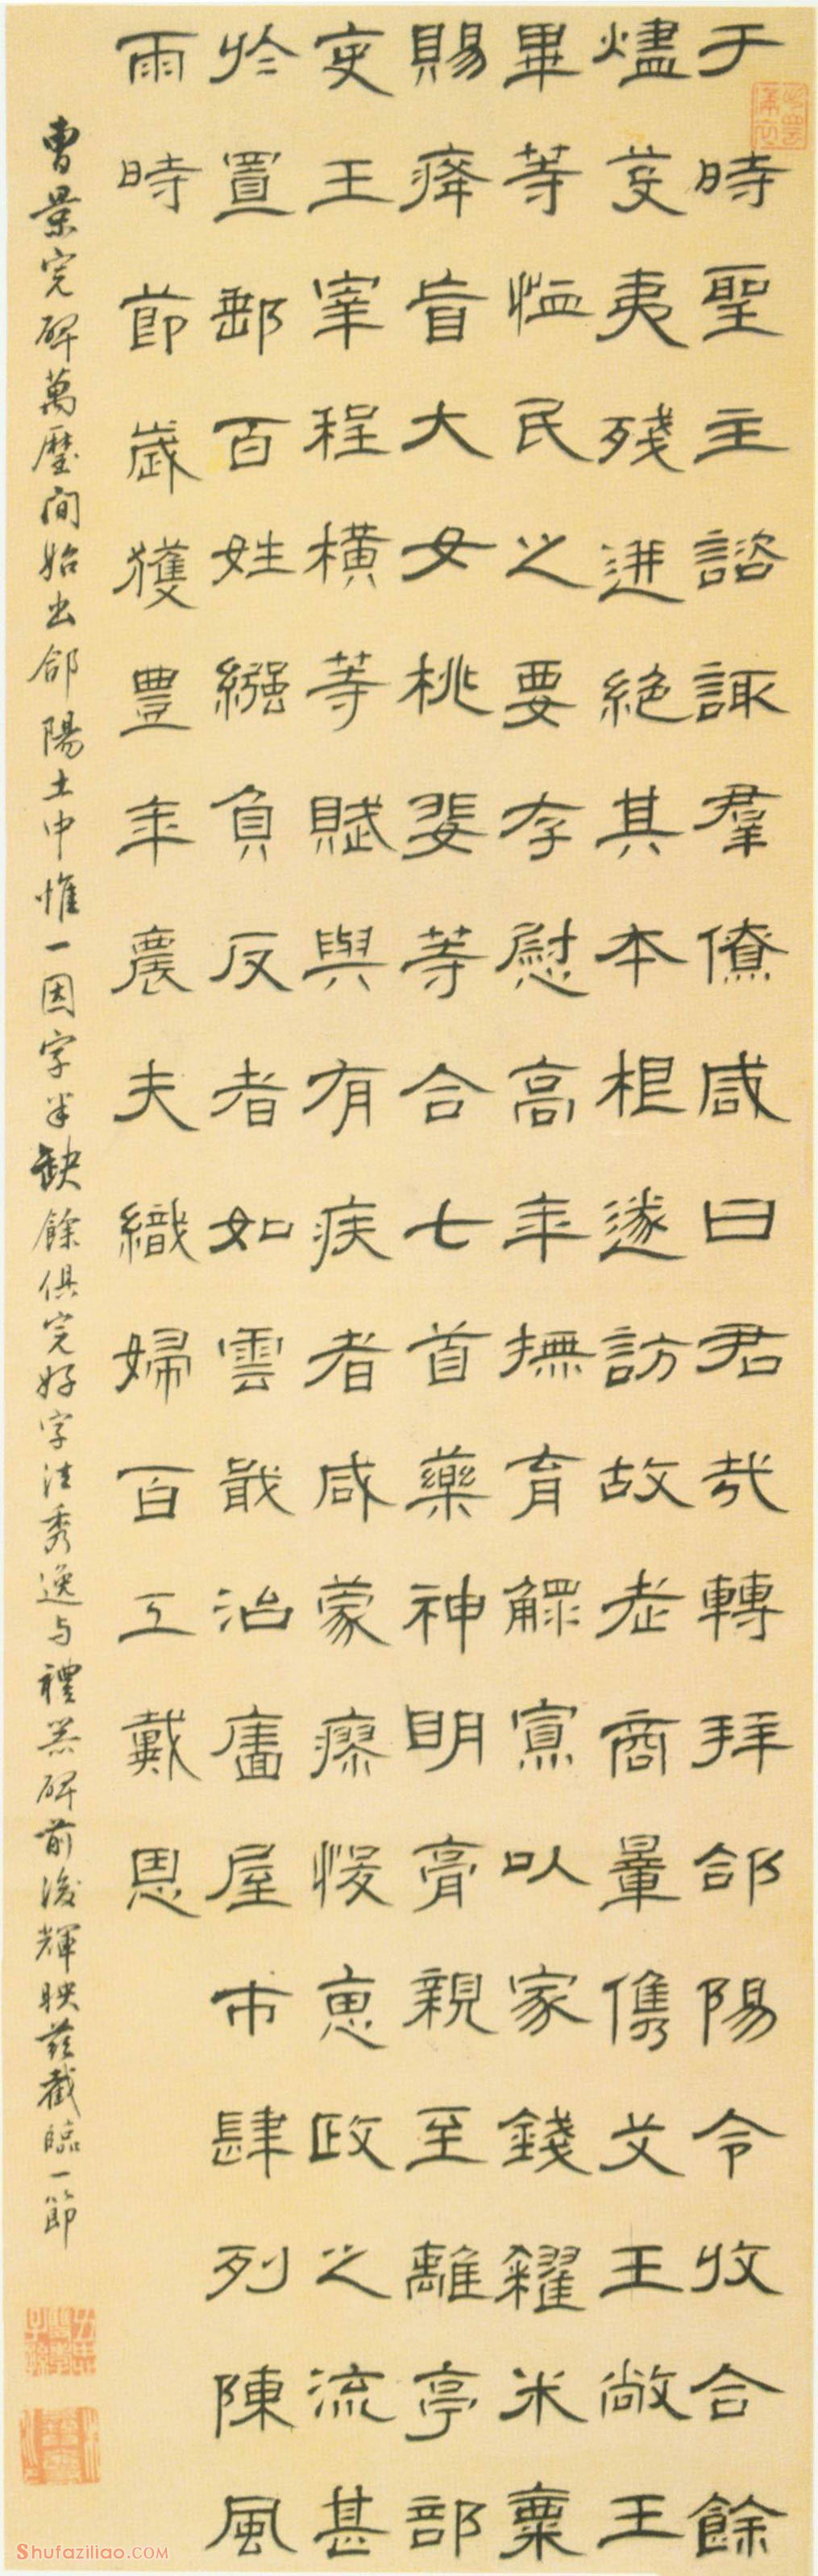 于時聖主諮諏羣僚咸曰君哉轉拜郃陽令收合餘
燼芟夷殘迸絶其本根遂訪故老商暈儁艾王敞王
畢等恤民之要存慰高年撫育鰥寡以家錢糴米粟
賜癃盲大女桃婓等合七首藥神明膏親至離亭部
吏王宰程橫等賦與有疾者咸蒙瘳悛惠政之流甚
於置郵百姓繦負反者如雲戢治廧屋市肆列陳風
雨時節歲獲豐年農夫織婦百工戴恩
曹景完碑萬歷間始出郃陽土中惟一因字半缺餘俱完好字法秀逸与禮器碑前後輝映茲截臨一節
Shufaziliao.COM